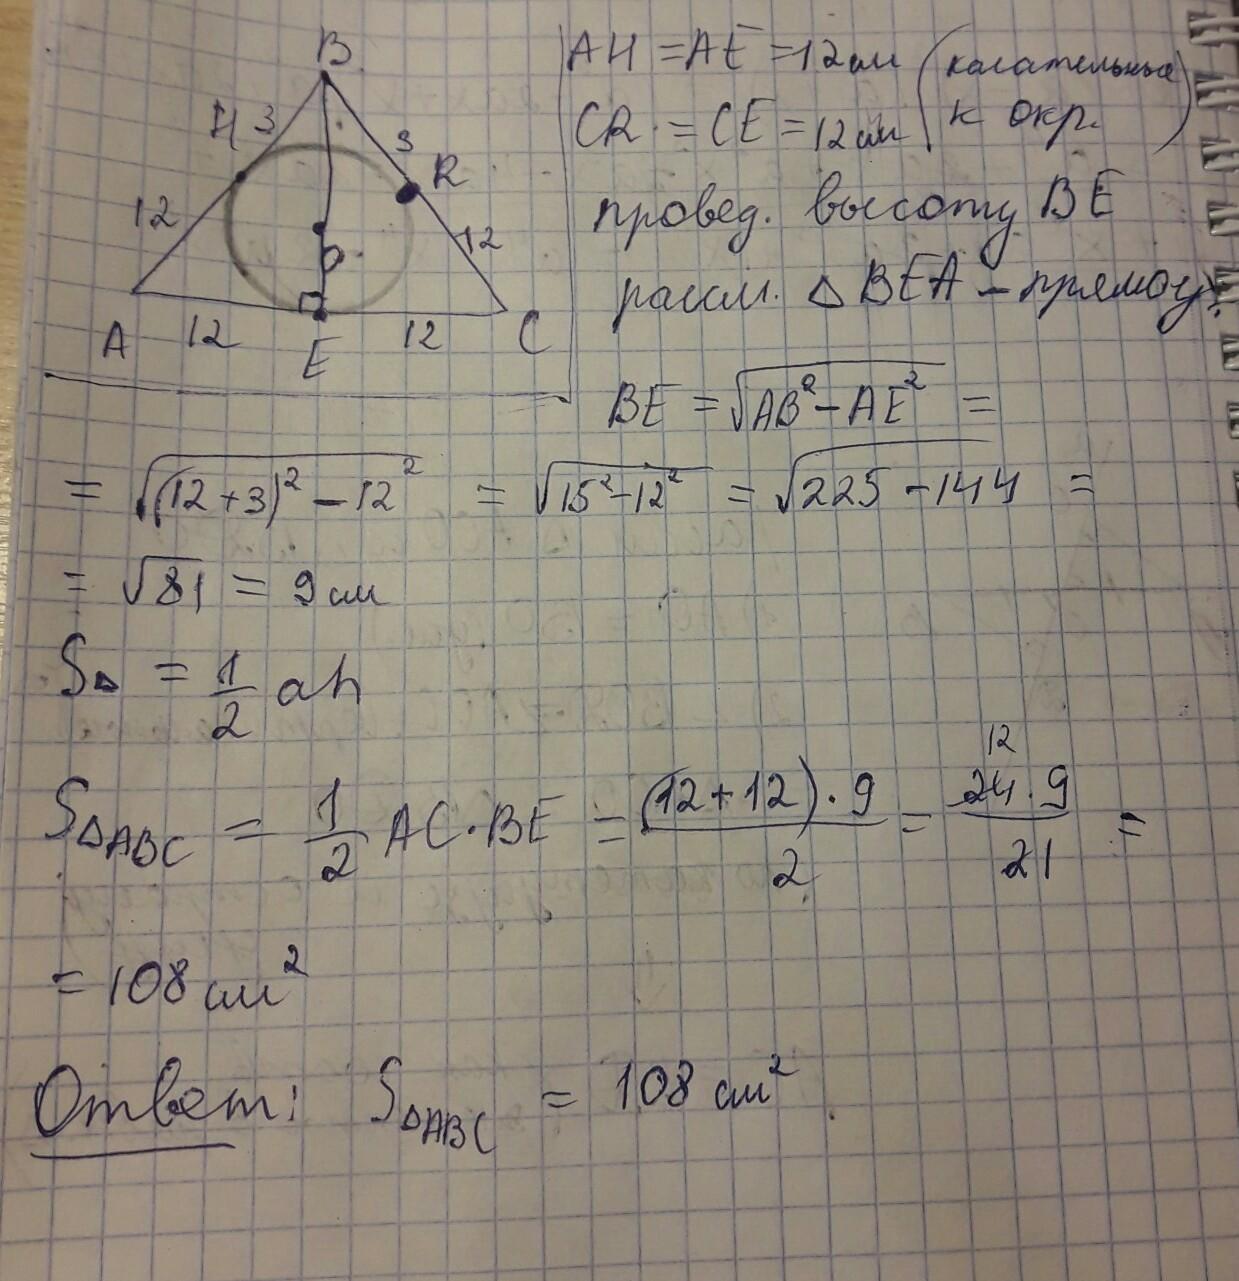 B
H 3
3
R
12
12
O
A 12 E 12 C
AH = AE = 12 см (касательные
CR = CE = 12 см к окр.)
провед. высоту BE
рассм. △ BEA – прямоуг.
BE = √AB² – AE² =
= √(12+3)² – 12² = √15²–12² = √225 – 144 =
= √81 = 9 см
S△ = 1/2 ah
S△ABC = 1/2 AC·BE = (12+12)·9/2 = 12 24·9/21 =
= 108 см²
Ответ: S△ABC = 108 см²